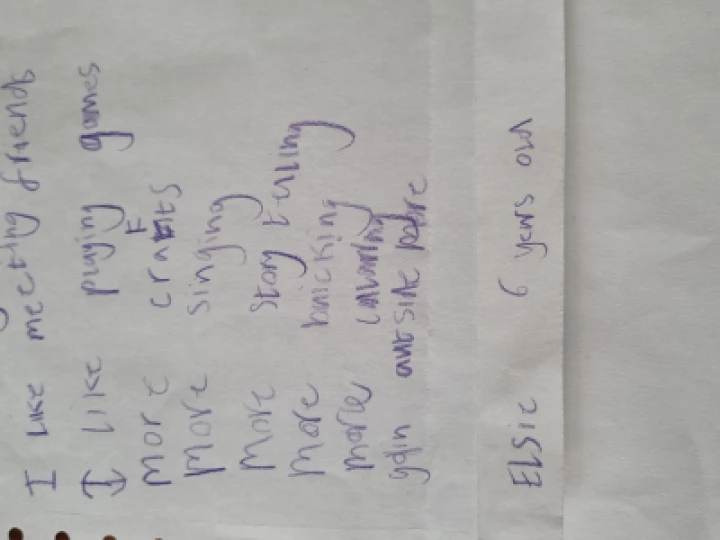 I LIKE meeting friends
I LIKE playing games
more crafts
more singing
more story telling
more
more
outside
ELSie 6 years old